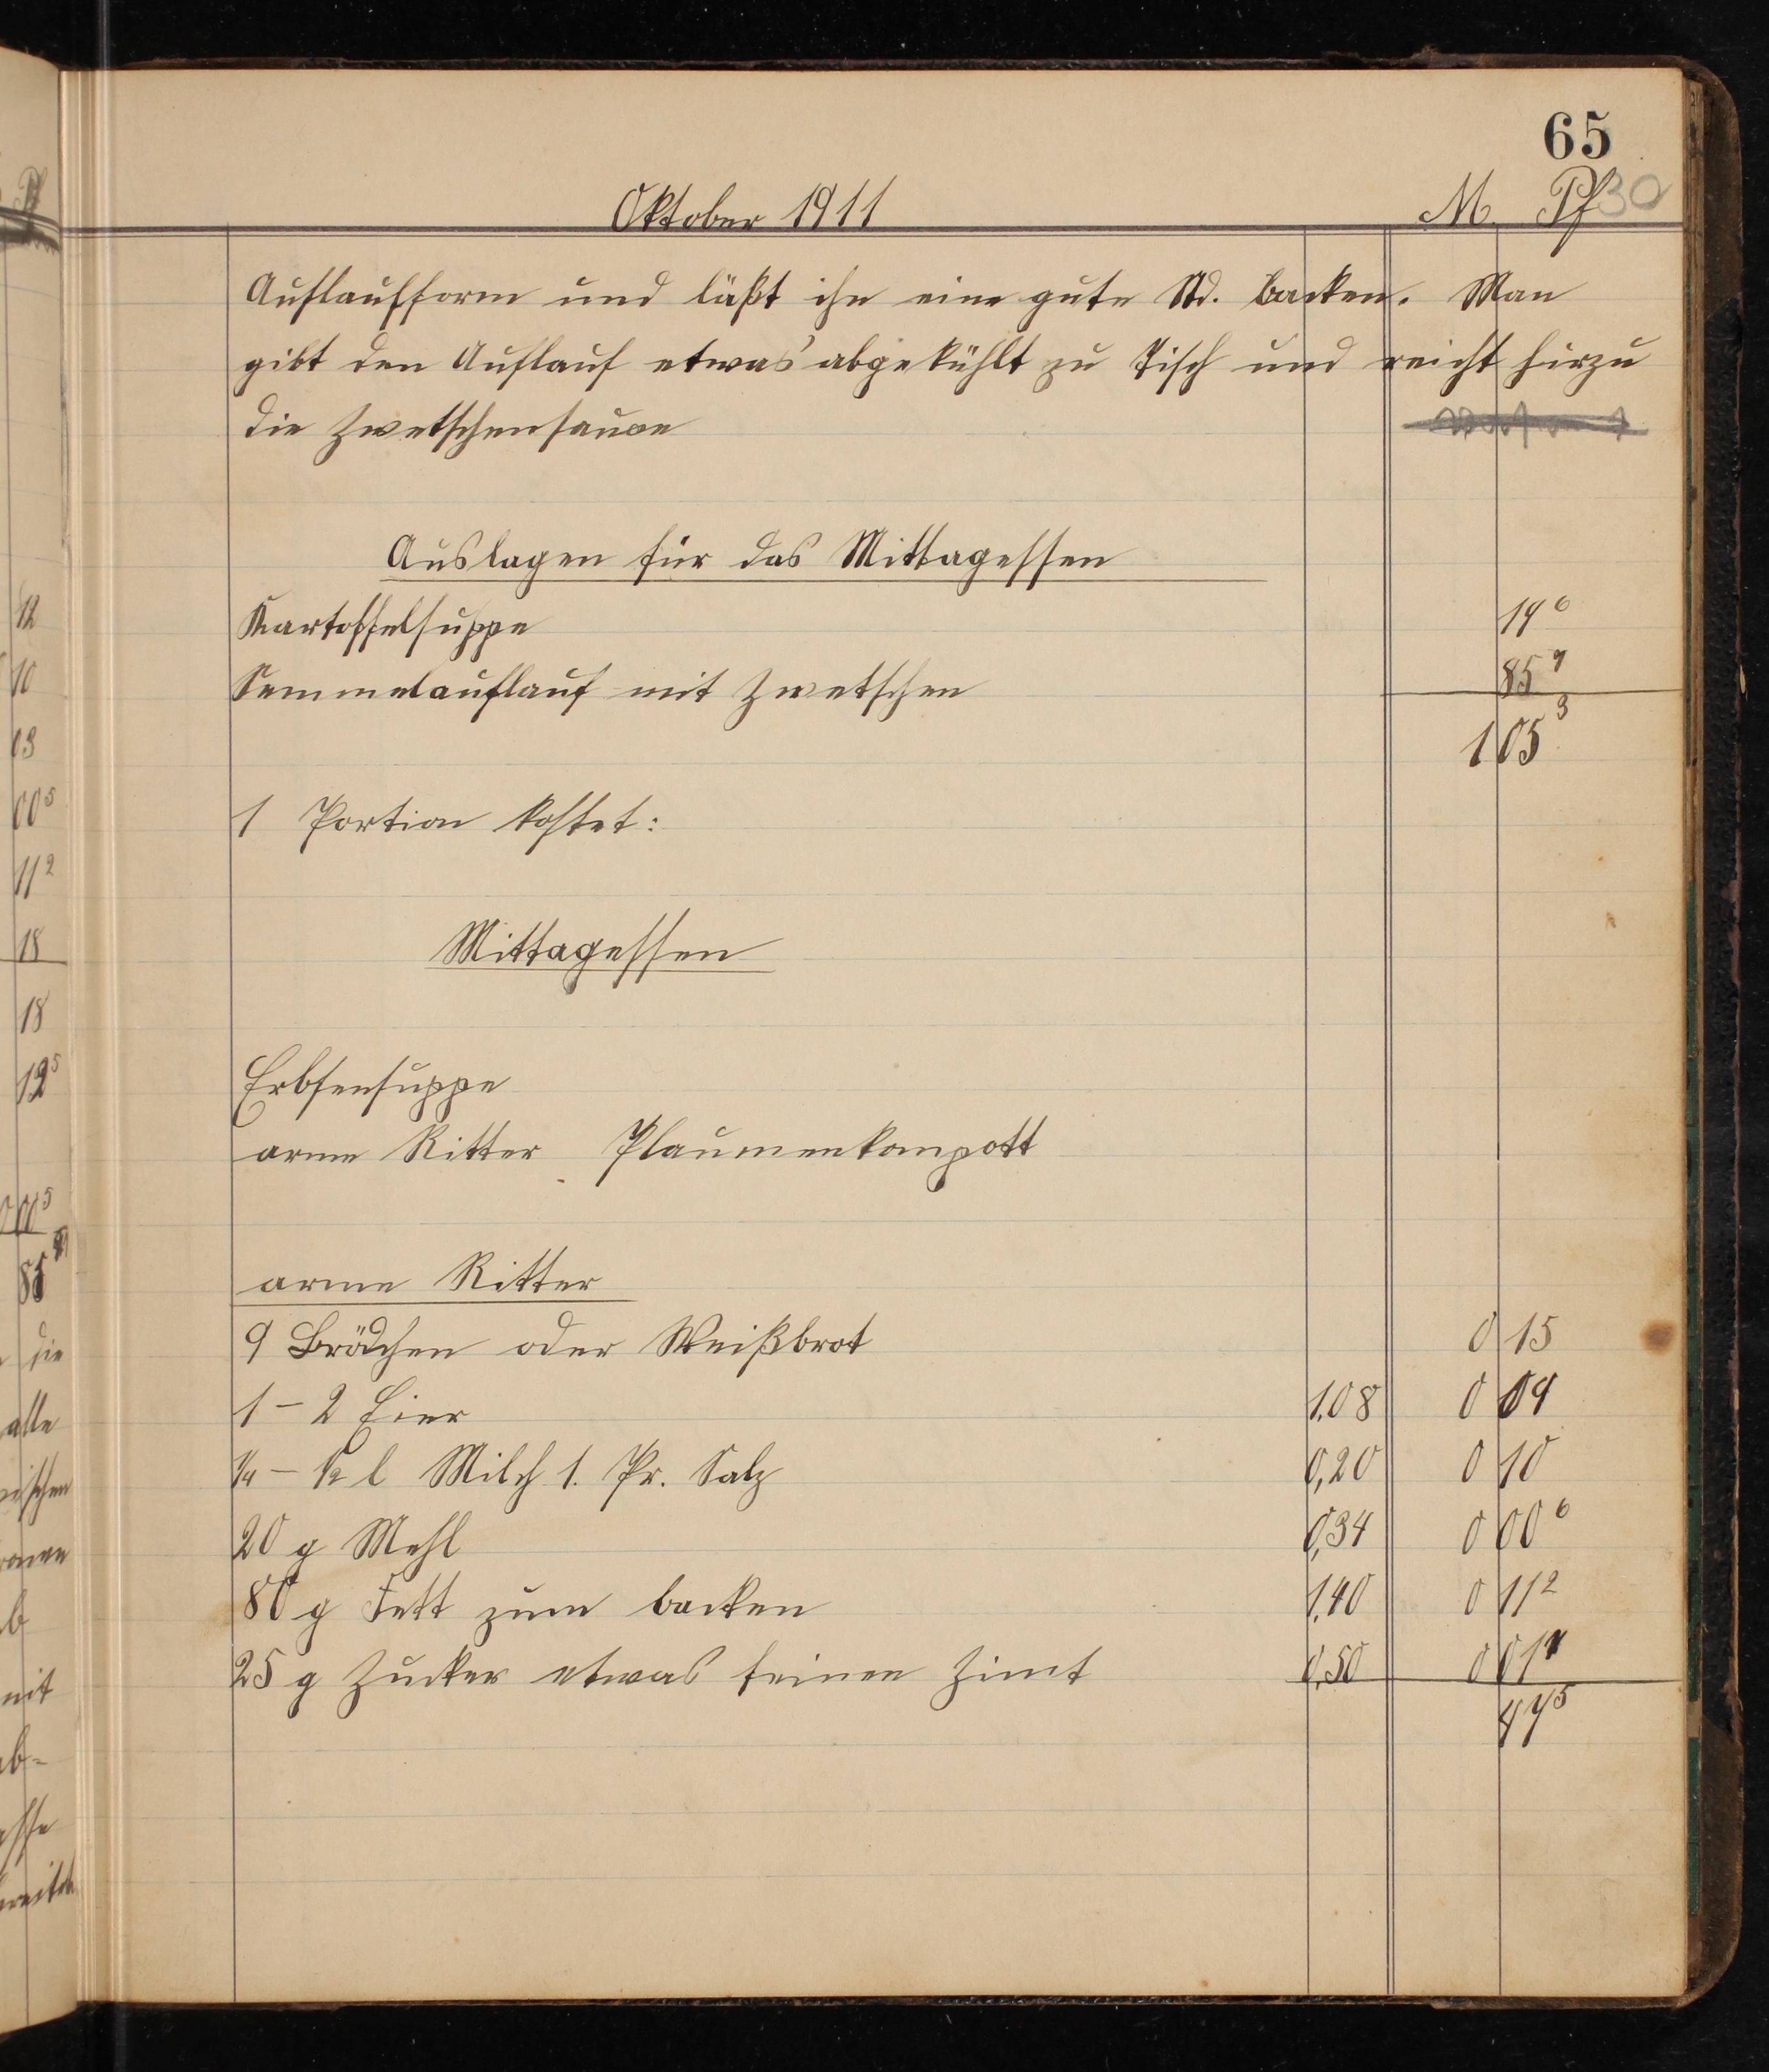 65
Oktober 1911 M. Pf 30
Auflaufform und läßt ihn eine gute Std. backen. Man
gibt den Auflauf etwas abgekühlt zu Tisch und reicht hirzu
die Zwetschensauce
Auslagen für das Mittagessen
Kartoffelsuppe 19⁶
Semmelauflauf mit Zwetschen 85⁷
1 05³
1 Portion kostet:
Mittagessen
Erbsensuppe
arme Ritter Plaumenkompott
arme Ritter
9 Brödchen oder Weißbrot 0 15
1 – 2 Eier 1.08 0 09
1/4 – 1/2 l Milch 1. Pr. Salz 0,20 0 10
20 g Mehl 0,34 0 00⁶
80 g Fett zum backen 1,40 0 11²
25 g Zucker etwas feinen Zimt 0,50 0 01
47⁵
12
10
03
00⁵
11²
18
18
12⁵
85
die
alle
b
mit
ab-